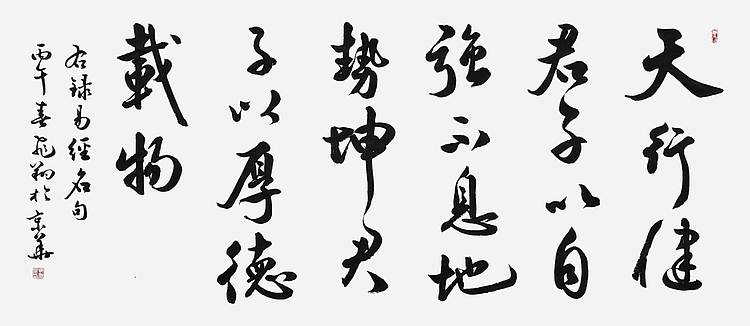 天行健
君子以自
強不息地
勢坤君
子以厚德
載物
右録易經名句
丙午春飛翔於京華